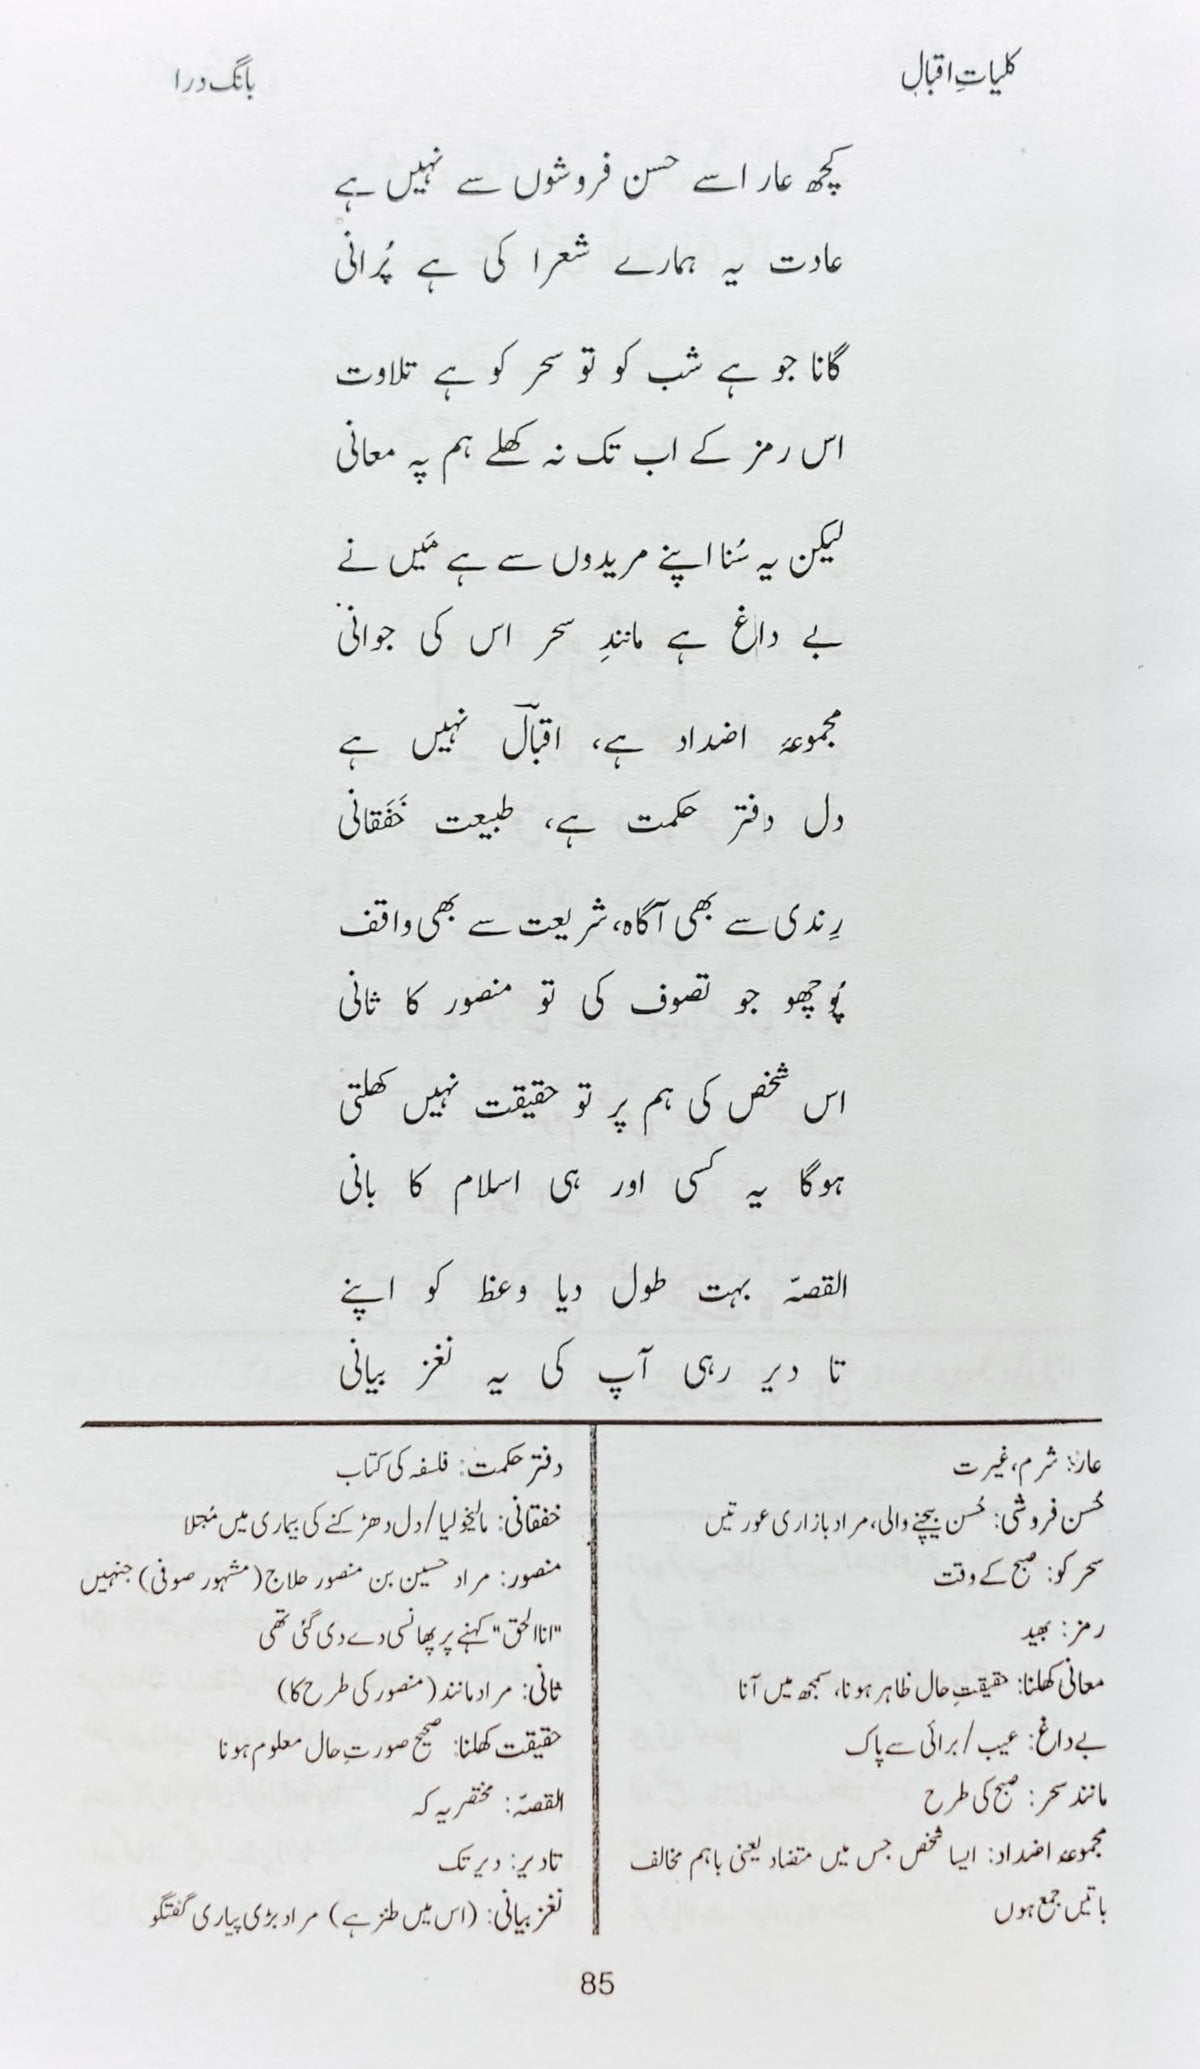 کلیاتِ اقبال
بانگ درا
کچھ عار اسے حسن فروشوں سے نہیں ہے
عادت یہ ہمارے شعرا کی ہے پُرانی
گانا جو ہے شب کو تو سحر کو ہے تلاوت
اس رمز کے اب تک نہ کھلے ہم پہ معانی
لیکن یہ سُنا اپنے مریدوں سے ہے مَیں نے
بے داغ ہے مانندِ سحر اس کی جوانی
مجموعۂ اضداد ہے، اقبالؔ نہیں ہے
دل دفترِ حکمت ہے، طبیعت خَفَقانی
رِندی سے بھی آگاہ، شریعت سے بھی واقف
پُوچھو جو تصوف کی تو منصور کا ثانی
اس شخص کی ہم پر تو حقیقت نہیں کھلتی
ہوگا یہ کسی اور ہی اسلام کا بانی
القصّہ بہت طول دیا وعظ کو اپنے
تا دیر رہی آپ کی یہ نغز بیانی
عار: شرم، غیرت
حُسن فروشی: حُسن بیچنے والی، مراد بازاری عورتیں
سحر کو: صبح کے وقت
رمز: بھید
معانی کھلنا: حقیقتِ حال ظاہر ہونا، سمجھ میں آنا
بے داغ: عیب/برائی سے پاک
مانند سحر: صبح کی طرح
مجموعۂ اضداد: ایسا شخص جس میں متضاد یعنی باہم مخالف
باتیں جمع ہوں
دفتر حکمت: فلسفہ کی کتاب
خفقانی: مالیخولیا/دل دھڑکنے کی بیماری میں مُبتلا
منصور: مراد حسین بن منصور حلاج (مشہور صوفی) جنہیں
"انا الحق" کہنے پر پھانسی دے دی گئی تھی
ثانی: مراد مانند (منصور کی طرح کا)
حقیقت کھلنا: صحیح صورتِ حال معلوم ہونا
القصّہ: مختصر یہ کہ
تادیر: دیر تک
نغز بیانی: (اس میں طنز ہے) مراد بڑی پیاری گفتگو
85